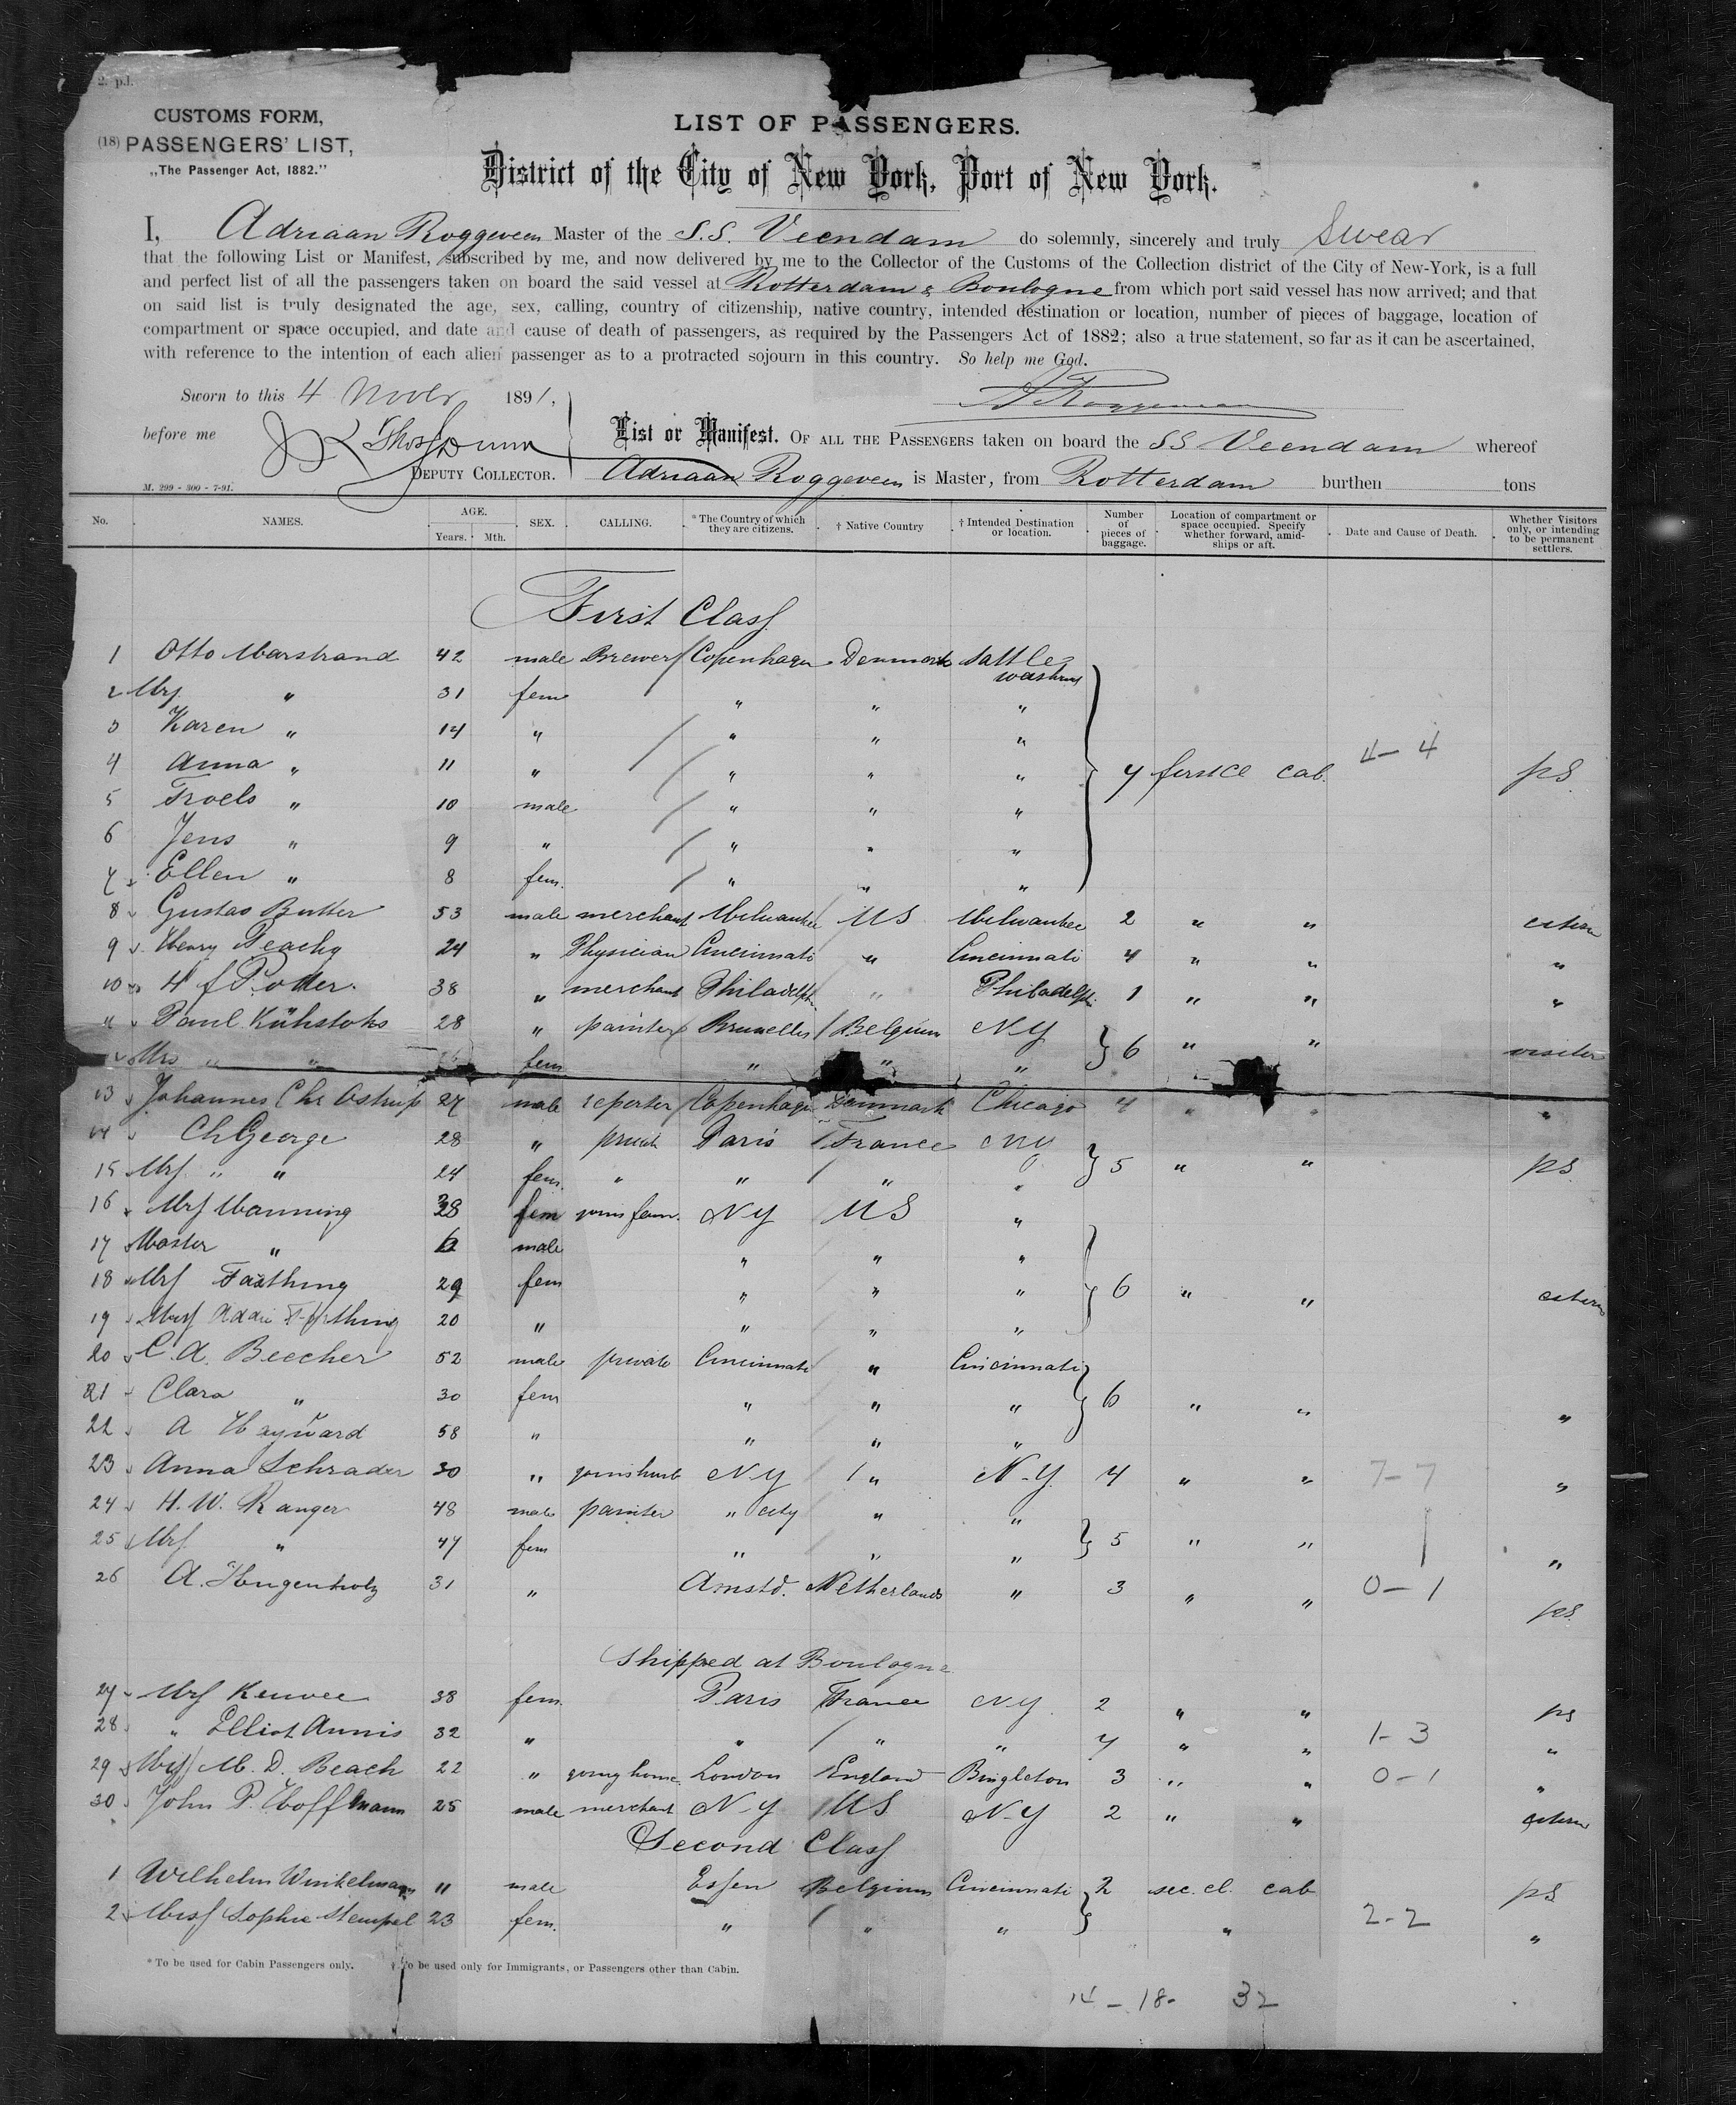 2. pd.
CUSTOMS FORM,
(18) PASSENGERS' LIST,
„The Passenger Act, 1882."
LIST OF PASSENGERS.
District of the City of New York, Port of New York.
I, Adriaan Roggeveen Master of the S.S. Veendam do solemnly, sincerely and truly swear
that the following List or Manifest, subscribed by me, and now delivered by me to the Collector of the Customs of the Collection district of the City of New-York, is a full
and perfect list of all the passengers taken on board the said vessel at Rotterdam & Boulogne from which port said vessel has now arrived; and that
on said list is truly designated the age, sex, calling, country of citizenship, native country, intended destination or location, number of pieces of baggage, location of
compartment or space occupied, and date and cause of death of passengers, as required by the Passengers Act of 1882; also a true statement, so far as it can be ascertained,
with reference to the intention of each alien passenger as to a protracted sojourn in this country. So help me God.
Sworn to this 4 Novbr 1891,
A Roggeveen
before me Thos Dunn
DEPUTY COLLECTOR.
List or Manifest. OF ALL THE PASSENGERS taken on board the SS Veendam whereof
Adriaan Roggeveen is Master, from Rotterdam burthen tons
M. 299 - 300 - 7-91.
No. NAMES. AGE. Years. Mth. SEX. CALLING. * The Country of which they are citizens. † Native Country † Intended Destination or location. Number of pieces of baggage. Location of compartment or space occupied. Specify whether forward, amidships or aft. Date and Cause of Death. Whether Visitors only, or intending to be permanent settlers.
First Class
1 Otto Marstrand 42 male Brewer Copenhagen Denmark Sattle
2 Mrs " 31 fem " " "
3 Karen " 14 " " " "
4 Anna " 11 " " " " 7 first cl cab. 4-4 ps.
5 Troels " 10 male " " "
6 Jens " 9 " " " "
7 Ellen " 8 fem. " " "
8 Gustav Butter 53 male merchant Milwaukee US Milwaukee 2 " "
9 Henry Peachy 24 " Physician Cincinnati " Cincinnati 4 " " "
10 H f Potter. 38 " merchant Philadelph. " Philadelph. 1 " " "
11 Paul Kühstohs 28 " painter Bruxelles Belgium NY 6 " " visitor
12 Mrs " " fem " " "
13 Johannes Chr Ostrup 27 male reporter Copenhagen Denmark Chicago 4 " " "
14 Ch George 28 " Paris France NY 5 " " ps.
15 Mrs " " 24 fem. " " " "
16 Mrs Manning 38 fem NY US "
17 Master " 6 male " " "
18 Mrs Fasthing 29 fem " " " 6 " "
19 Miss Addie 20 " " " "
20 C. A. Beecher 52 male private Cincinnati " Cincinnati
21 Clara " 30 fem " " " 6 " " "
22 A Hayward 58 " " " "
23 Anna Schrader 30 " NY " N.Y. 4 " " 7-7 "
24 H. W. Ranger 48 male painter " city " "
25 Mrs " 47 fem " " " 5 " " "
26 A. Hugenholz 31 " Amstd. Netherlands " 3 " " 0-1 ps.
Shipped at Boulogne
27 Mrs Kenvee 38 fem. Paris France NY. 2 " " ps
28 " Elliot Annis 32 " " " " 7 " " 1-3 "
29 Miss M. D. Beach 22 " going home London England Bingleton 3 " " 0-1 "
30 John P. Hoffmann 25 male merchant N-Y US N-Y 2 " "
Second Class
1 Wilhelm Winkelmann 11 male Essen Belgium Cincinnati 2 sec. cl. cab ps
2 Miss Sophie Stempel 23 fem. " " " " 2-2 "
* To be used for Cabin Passengers only. † To be used only for Immigrants, or Passengers other than Cabin.
14 - 18 - 32